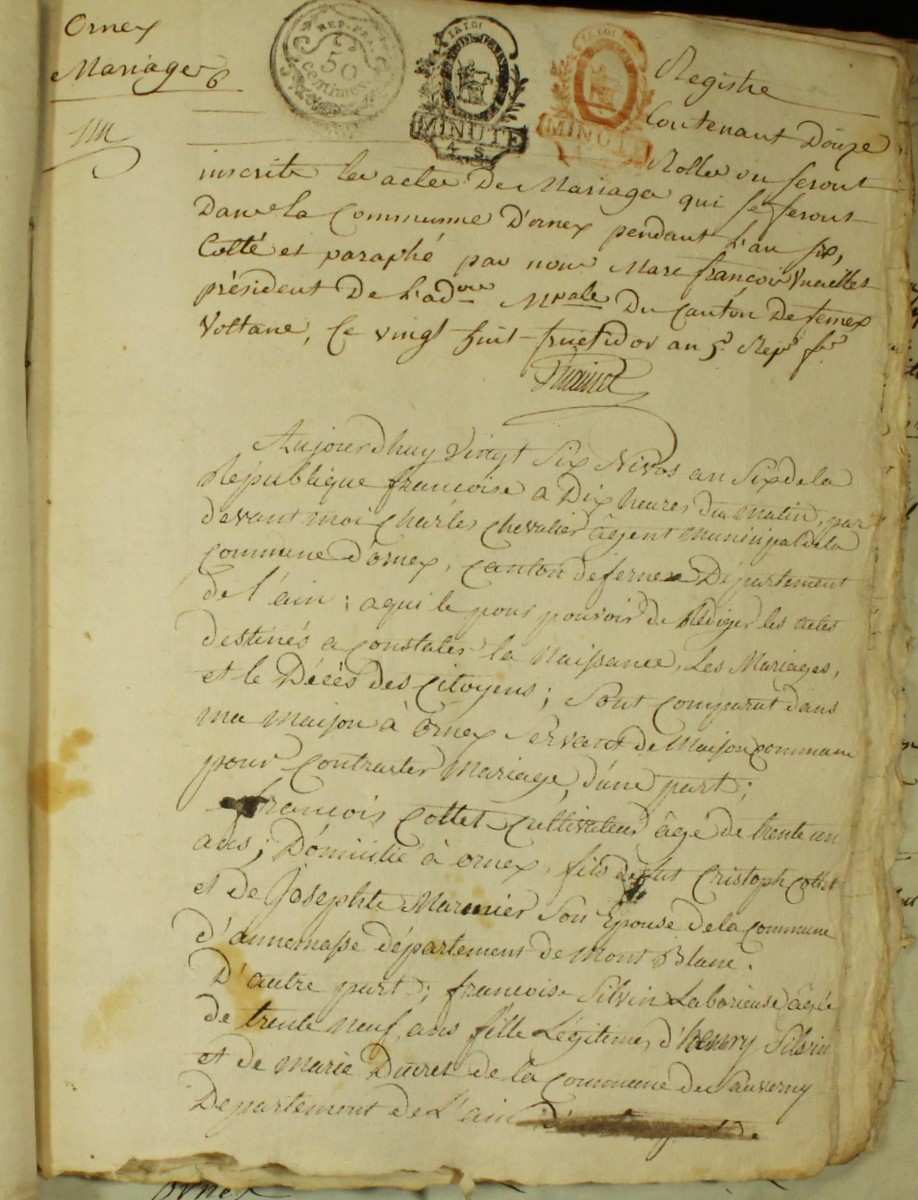 Ornex
Mariages
REP. FRA.
50
centimes
LA LOI
MINUTE
4. S.
LA LOI
MINUTE
Registre
Contenant Douze
Rolles ou seront
inscrits les actes De Mariage qui se feront
Dans la Commune D'ornex pendant l'an six,
Cotté et paraphé par nous Marc françois
président De L'adon Mpale Du Canton De fernex
Voltaire, Ce vingt huit fructidor an 5e Repe fse
Aujourdhuy Vingt Six Nivos an Six de la
République francoise a Dix heures du Matin, par
devant moi Charles Chevalier agent Municipal de la
commune d'ornex, canton de fernex Département
de l'ain ; a qui le pour pouvoir de Rédiger les actes
destinés a constater la Naissance, Les Mariages,
et le Décès des Citoyens ; Sont comparut dans
ma maison à Ornex Servant de Maison commune
pour Contracter Mariage, d'une part ;
françois Cottet Cultivateur âgé de trente un
ans ; Domicilié à Ornex, fils de Cristoph Cottet
et de Josephte Marinier Son Epouse de la commune
d'annemasse département de Mont Blanc.
D'autre part ; francoise Silvin Laborieuse âgée
de trente neuf ans fille Légitime, d'henry Silvin
et de Marie Ducret de la commune de Sauverny
Département de L'ain
ornex